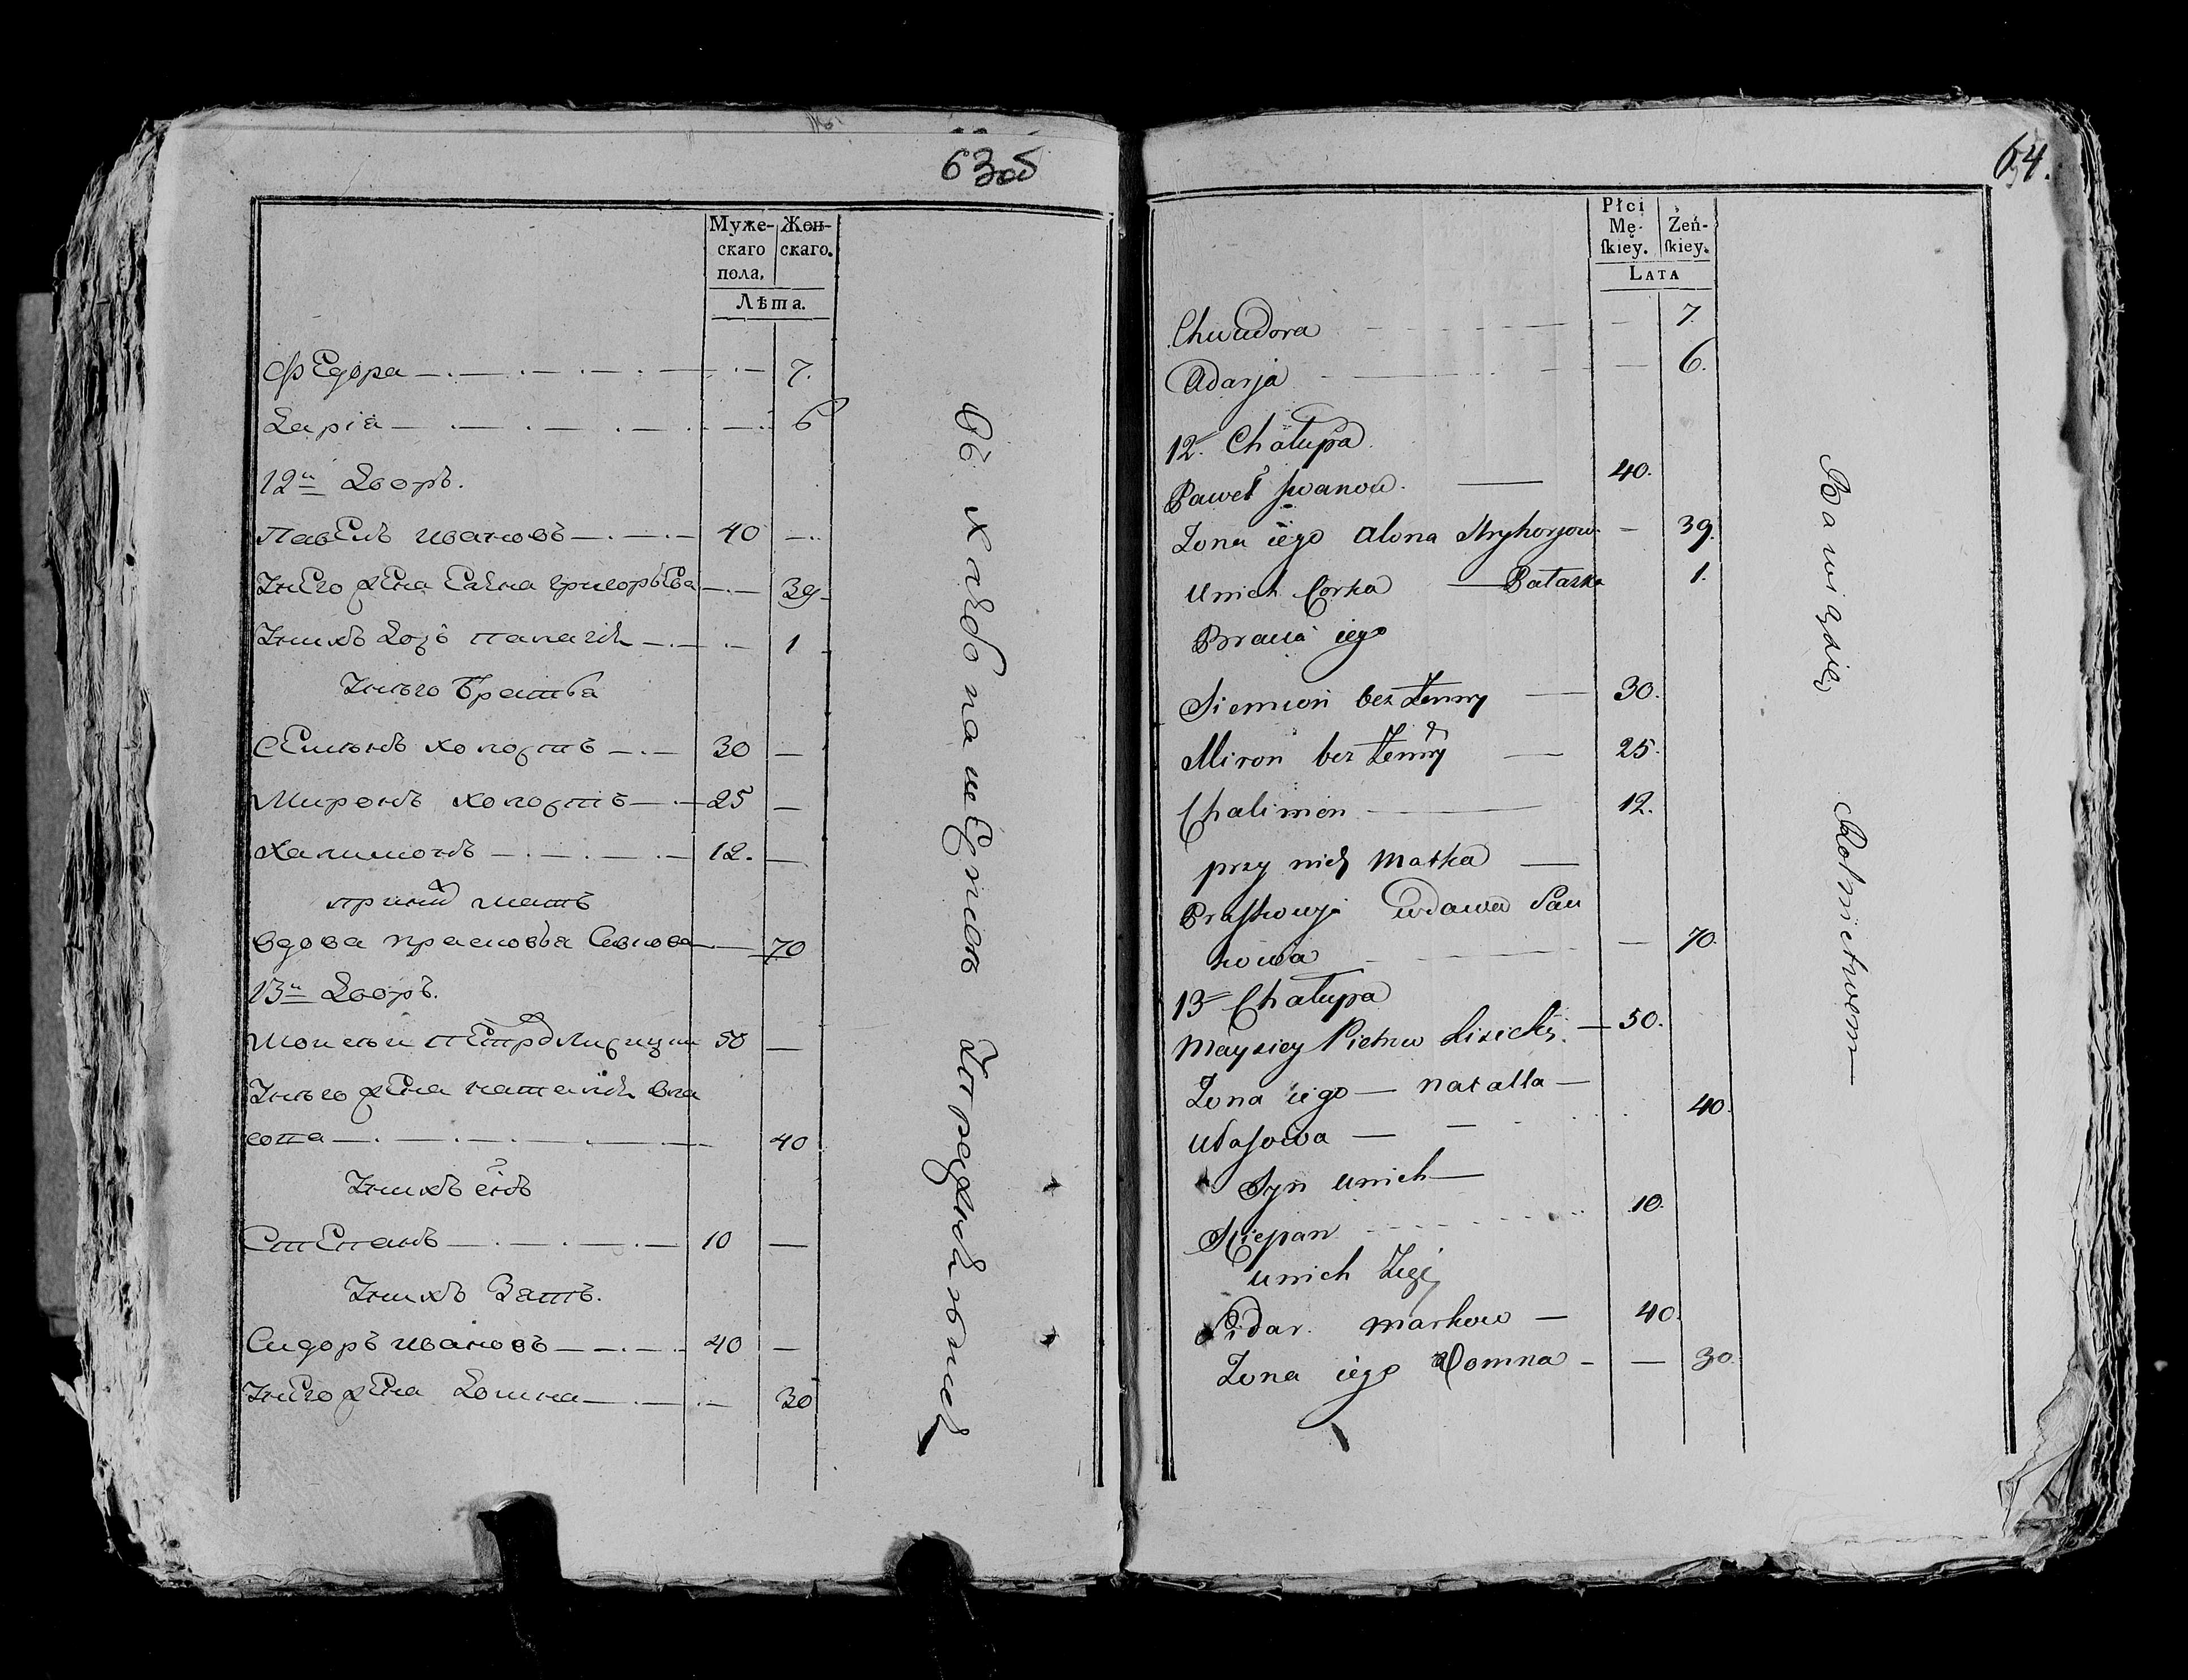 63об
Муже- Жен-
скаго скаго.
пола,
Лѣта.
Федора 7.
Дарія 6
12й Дворъ.
Павелъ ивановъ 40
Унего жена Елена григорьева 39
Унихъ дочь палагея 1
Унего братья
Семионъ холостъ 30
Миронъ холостъ 25
Халимонъ 12.
при них мать
вдова прасковья 70
13й Дворъ.
Моисеи петров 50
Унего жена наталя вла
сова 40
Унихъ сынъ
Степанъ 10
Унихъ Зять.
Сидоръ ивановъ 40
Унего жена Домна 30
Въ хлебопашестве Упражняются
64.
Płci
Mę- Żeń-
skiey. skiey.
LATA
Chwiadora 7.
Adarja 6.
12. Chałupa
Paweł Jwanow. 40.
Zona iego Alona Hryhorjow 39.
Unich Corka Pałaszka 1.
Bracia iego
Siemion bez Zenny 30.
Miron bez Zenny 25.
Chalimon 12.
przy nich Matka
Praskowja wdawa Sau
kowa 70.
13 Chałupa
Maysiey Pietrow Lisicki 50.
Zona iego Natalla
Ułasowa 40.
Syn unich
Sciepan 10.
Unich Zięć
Sidar. Markow 40.
Zona iego Domna 30.
Bawią się Rolnictwem